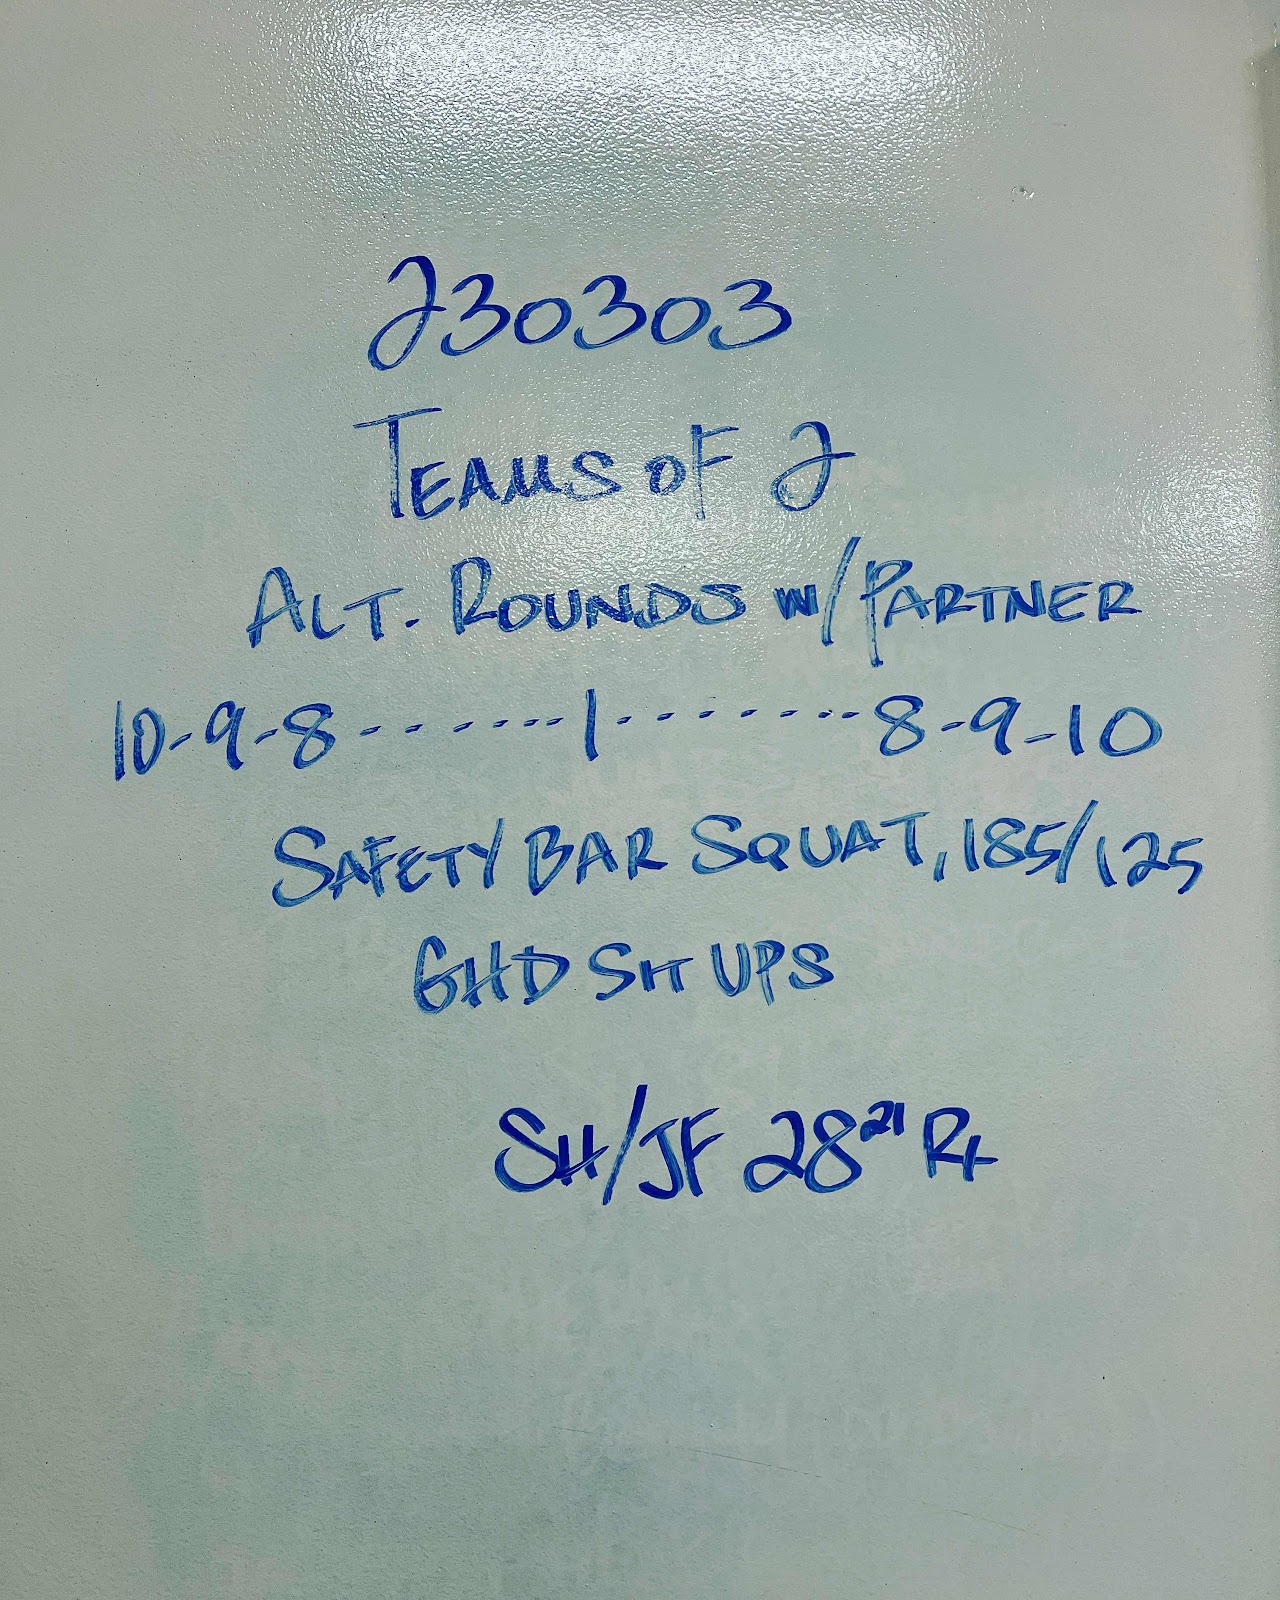 230303
TEAMS OF 2
ALT. ROUNDS W/PARTNER
10-9-8-------1--------8-9-10
SAFETY BAR SQUAT, 185/125
GHD SIT UPS
SH/JF 28²¹ Rx